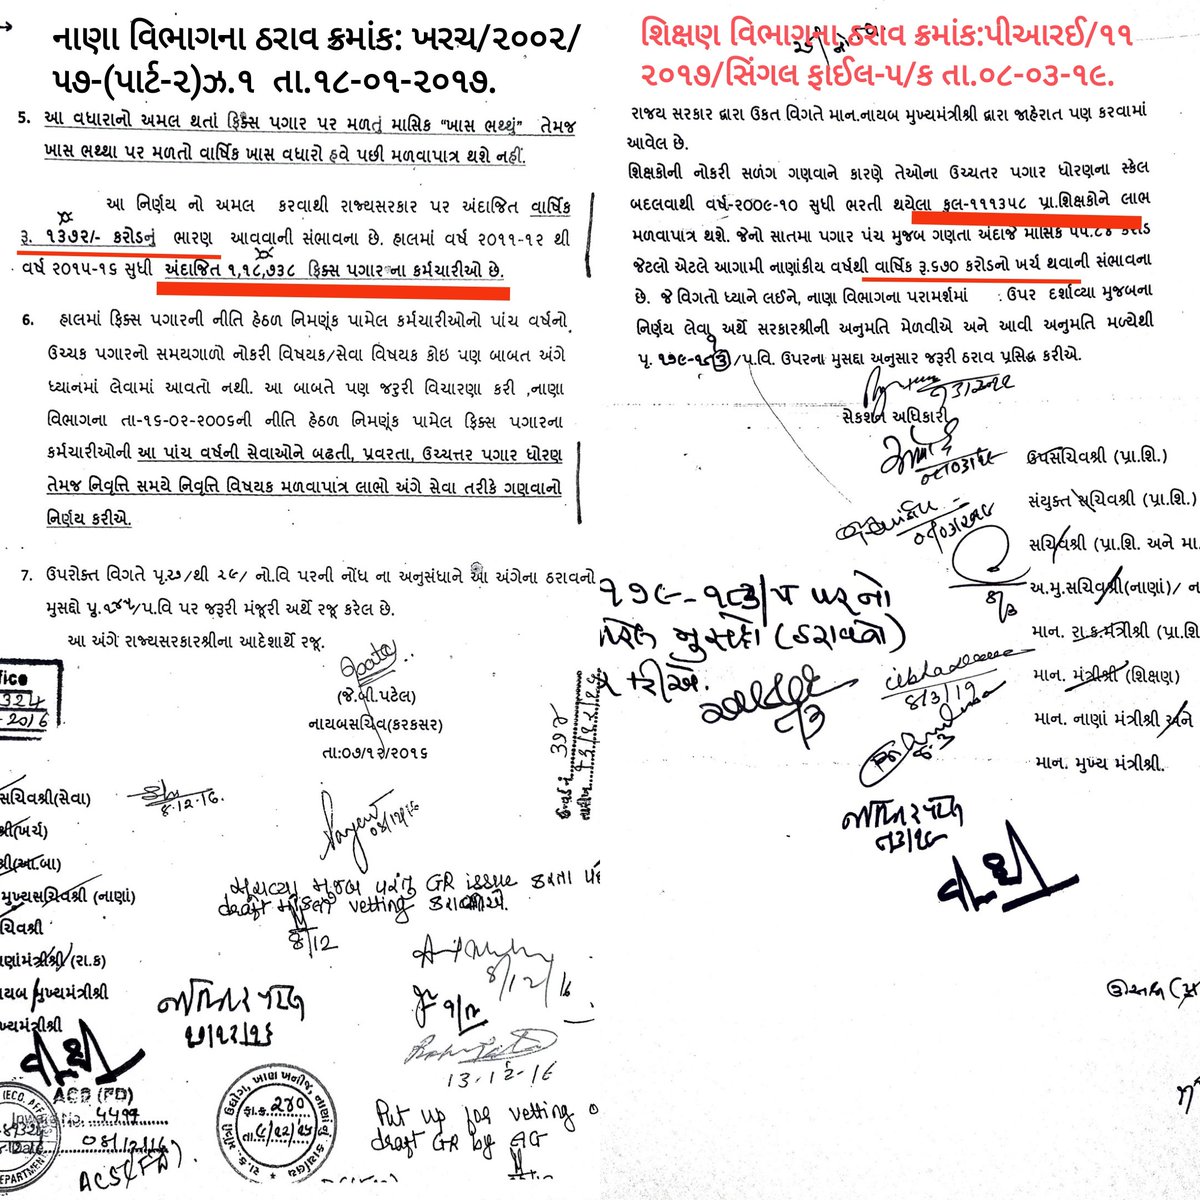 નાણા વિભાગના ઠરાવ ક્રમાંક: ખરચ/૨૦૦૨/
૫૭-(પાર્ટ-૨)ઝ.૧ તા.૧૮-૦૧-૨૦૧૭.
5. આ વધારાનો અમલ થતાં ફિક્સ પગાર પર મળતું માસિક “ખાસ ભથ્થું” તેમજ
ખાસ ભથ્થા પર મળતો વાર્ષિક ખાસ વધારો હવે પછી મળવાપાત્ર થશે નહીં.
આ નિર્ણય નો અમલ કરવાથી રાજ્યસરકાર પર અંદાજિત વાર્ષિક
રૂ. ૧૩૭૨/- કરોડનું ભારણ આવવાની સંભાવના છે. હાલમાં વર્ષ ૨૦૧૧-૧૨ થી
વર્ષ ૨૦૧૫-૧૬ સુધી અંદાજિત ૧,૧૮,૭૩૮ ફિક્સ પગારના કર્મચારીઓ છે.
6. હાલમાં ફિક્સ પગારની નીતિ હેઠળ નિમણૂંક પામેલ કર્મચારીઓનો પાંચ વર્ષનો
ઉચ્ચક પગારનો સમયગાળો નોકરી વિષયક/સેવા વિષયક કોઇ પણ બાબત અંગે
ધ્યાનમાં લેવામાં આવતો નથી. આ બાબતે પણ જરુરી વિચારણા કરી ,નાણા
વિભાગના તા-૧૬-૦૨-૨૦૦૬ની નીતિ હેઠળ નિમણૂંક પામેલ ફિક્સ પગારના
કર્મચારીઓની આ પાંચ વર્ષની સેવાઓને બઢતી, પ્રવરતા, ઉચ્ચત્તર પગાર ધોરણ
તેમજ નિવૃત્તિ સમયે નિવૃત્તિ વિષયક મળવાપાત્ર લાભો અંગે સેવા તરીકે ગણવાનો
નિર્ણય કરીએ.
7. ઉપરોક્ત વિગતે પૃ.૨૭/થી ૨૯/ નો.વિ પરની નોંધ ના અનુસંધાને આ અંગેના ઠરાવનો
મુસદ્દો પૃ. /પ.વિ પર જરૂરી મંજૂરી અર્થે રજૂ કરેલ છે.
આ અંગે રાજ્યસરકારશ્રીના આદેશાર્થે રજૂ.
(જે.બી.પટેલ)
નાયબસચિવ(કરકસર)
તા:૦૭/૧૨/૨૦૧૬
ffice
324
-2016
સચિવશ્રી(સેવા)
8.12.16.
શ્રી(ખર્ચ)
શ્રી(આ.બા)
મુખ્યસચિવશ્રી (નાણાં)
ચિવશ્રી
ણાંમંત્રીશ્રી(રા.ક)
યબ મુખ્યમંત્રીશ્રી
ખ્યમંત્રીશ્રી
સૂચવ્યા મુજબ પરંતુ GR issue કરતા પહે
draft મોકલી vetting કરાવીએ.
8/12
8/12/16
13-12-16
ACS (FD)
Inward No. 5599
08/12/16
ACS(FD).
Put up for vetting o
draft GR by AG
શિક્ષણ વિભાગના ઠરાવ ક્રમાંક:પીઆરઈ/૧૧
૨૦૧૭/સિંગલ ફાઈલ-૫/ક તા.૦૮-૦૩-૧૯.
રાજ્ય સરકાર દ્વારા ઉકત વિગતે માન.નાયબ મુખ્યમંત્રીશ્રી દ્વારા જાહેરાત પણ કરવામાં
આવેલ છે.
શિક્ષકોની નોકરી સળંગ ગણવાને કારણે તેઓના ઉચ્ચતર પગાર ધોરણના સ્કેલ
બદલવાથી વર્ષ-૨૦૦૯-૧૦ સુધી ભરતી થયેલા કુલ-૧૧૧૩૫૮ પ્રા.શિક્ષકોને લાભ
મળવાપાત્ર થશે. જેનો સાતમા પગાર પંચ મુજબ ગણતા અંદાજે માસિક ૫૫.૮૪ કરોડ
જેટલો એટલે આગામી નાણાંકીય વર્ષથી વાર્ષિક રૂ.૬૭૦ કરોડનો ખર્ચ થવાની સંભાવના
છે. જે વિગતો ધ્યાને લઈને, નાણા વિભાગના પરામર્શમાં : ઉપર દર્શાવ્યા મુજબના
નિર્ણય લેવા અર્થે સરકારશ્રીની અનુમતિ મેળવીએ અને આવી અનુમતિ મળ્યેથી
પૃ. ૧૭૯-૧૮૩/પ.વિ. ઉપરના મુસદ્દા અનુસાર જરૂરી ઠરાવ પ્રસિદ્ધ કરીએ.
સેકશન અધિકારી
ઉપસચિવશ્રી (પ્રા.શિ.)
સંયુક્ત સચિવશ્રી (પ્રા.શિ.)
સચિવશ્રી (પ્રા.શિ. અને મા.
અ.મુ.સચિવશ્રી(નાણાં)/ ના
માન. રા.ક.મંત્રીશ્રી (પ્રા.શિ
માન. મંત્રીશ્રી (શિક્ષણ)
માન. નાણાં મંત્રીશ્રી અને
માન. મુખ્ય મંત્રીશ્રી.
૧૭૯-૧૮૩/પ પરનો
મુસદ્દો (ઠરાવનો)
8/3/19